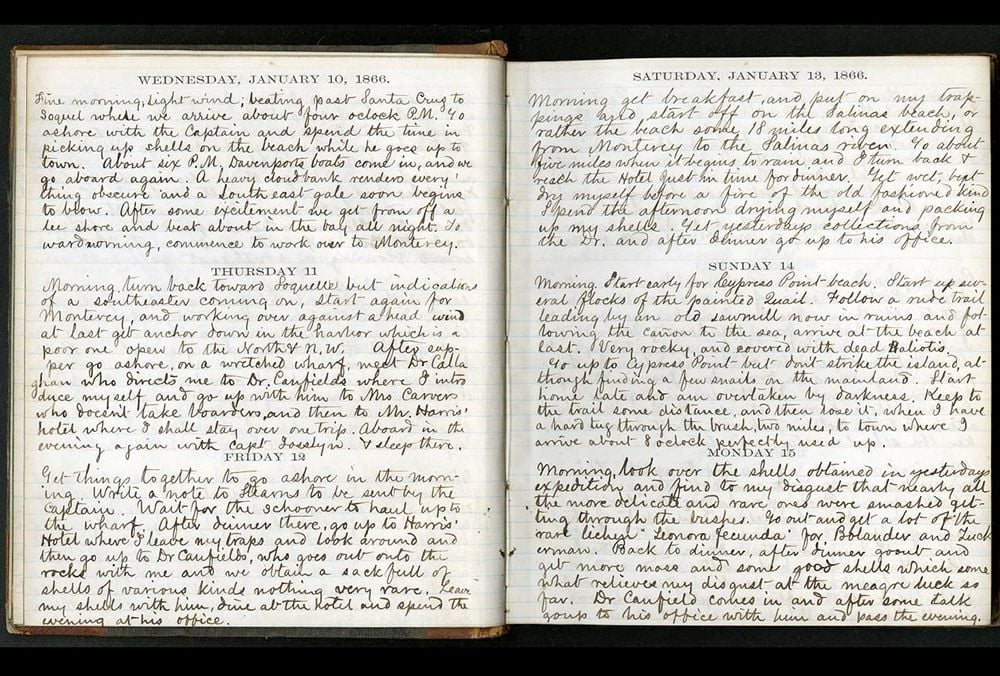 WEDNESDAY, JANUARY 10, 1866.
Fine morning, light wind; beating past Santa Cruz to
Soquel where we arrive about four oclock P.M. Go
ashore with the Captain and spend the time in
picking up shells on the beach while he goes up to
town. About six P.M. Davenports boats come in, and we
go aboard again. A heavy cloudbank renders every
thing obscure and a South east gale soon begins
to blow. After some excitement we get from off a
lee shore and beat about in the bay all night. To
ward morning, commence to work over to Monterey.
THURSDAY 11
Morning, turn back toward Soquelle but indications
of a southeaster coming on, start again for
Monterey, and working over against a head wind
at last get anchor down in the harbor which is a
poor one open to the North & N.W. After sup-
per go ashore, on a wretched wharf, meet Dr Calla
ghan who directs me to Dr. Canfields where I intro
duce myself and go up with him to Mrs Carvers
who doesnt take boarders, and then to Mr. Harris'
hotel where I shall stay over one trip. Aboard in the
evening again with Capt Josslyn. & sleep there.
FRIDAY 12
Get things together to go ashore in the morn-
ing. Write a note to Stearns to be sent by the
Captain. Wait for the schooner to haul up to
the wharf. After dinner there, go up to Harris'
Hotel where I leave my traps and look around and
then go up to Dr Canfields', who goes out onto the
rocks with me and we obtain a sack full of
shells of various kinds nothing very rare. Leave
my shells with him, dine at the hotel and spend the
evening at his office.
SATURDAY, JANUARY 13, 1866.
Morning get breakfast, and put on my trap-
pings and, start off on the Salinas beach, or
rather the beach some 18 miles long extending
from Monterey to the Salinas river. Go about
five miles when it begins to rain, and I turn back &
reach the Hotel just in time for dinner. Get wet, but
dry myself before a fire of the old fashioned kind
I spend the afternoon drying myself and packing
up my shells. Get yesterdays collections from
the Dr. and after dinner go up to his office.
SUNDAY 14
Morning. Start early for Cypress Point beach. Start up sev-
eral flocks of the painted Quail. Follow a rude trail
leading by an old sawmill now in ruins and fol-
lowing the cañon to the sea, arrive at the beach at
last. Very rocky, and covered with dead Haliotis.
Go up to Cypress Point but dont strike the island, al-
though finding a few snails on the mainland. Start
home late and am overtaken by darkness. Keep to
the trail some distance, and then lose it, when I have
a hard tug through the brush, two miles, to town where I
arrive about 8 oclock perfectly used up.
MONDAY 15
Morning, look over the shells obtained in yesterdays
expedition and find to my disgust that nearly all
the more delicate and rare ones were smashed get-
ting through the bushes. Go out and get a lot of the
rare lichen fecunda for Bolander and Tuck
erman. Back to dinner, after dinner go out and
get more moss and some good shells which some
what relieves my disgust at the meagre luck so
far. Dr Canfield comes in and after some talk
go up to his office with him and pass the evening.